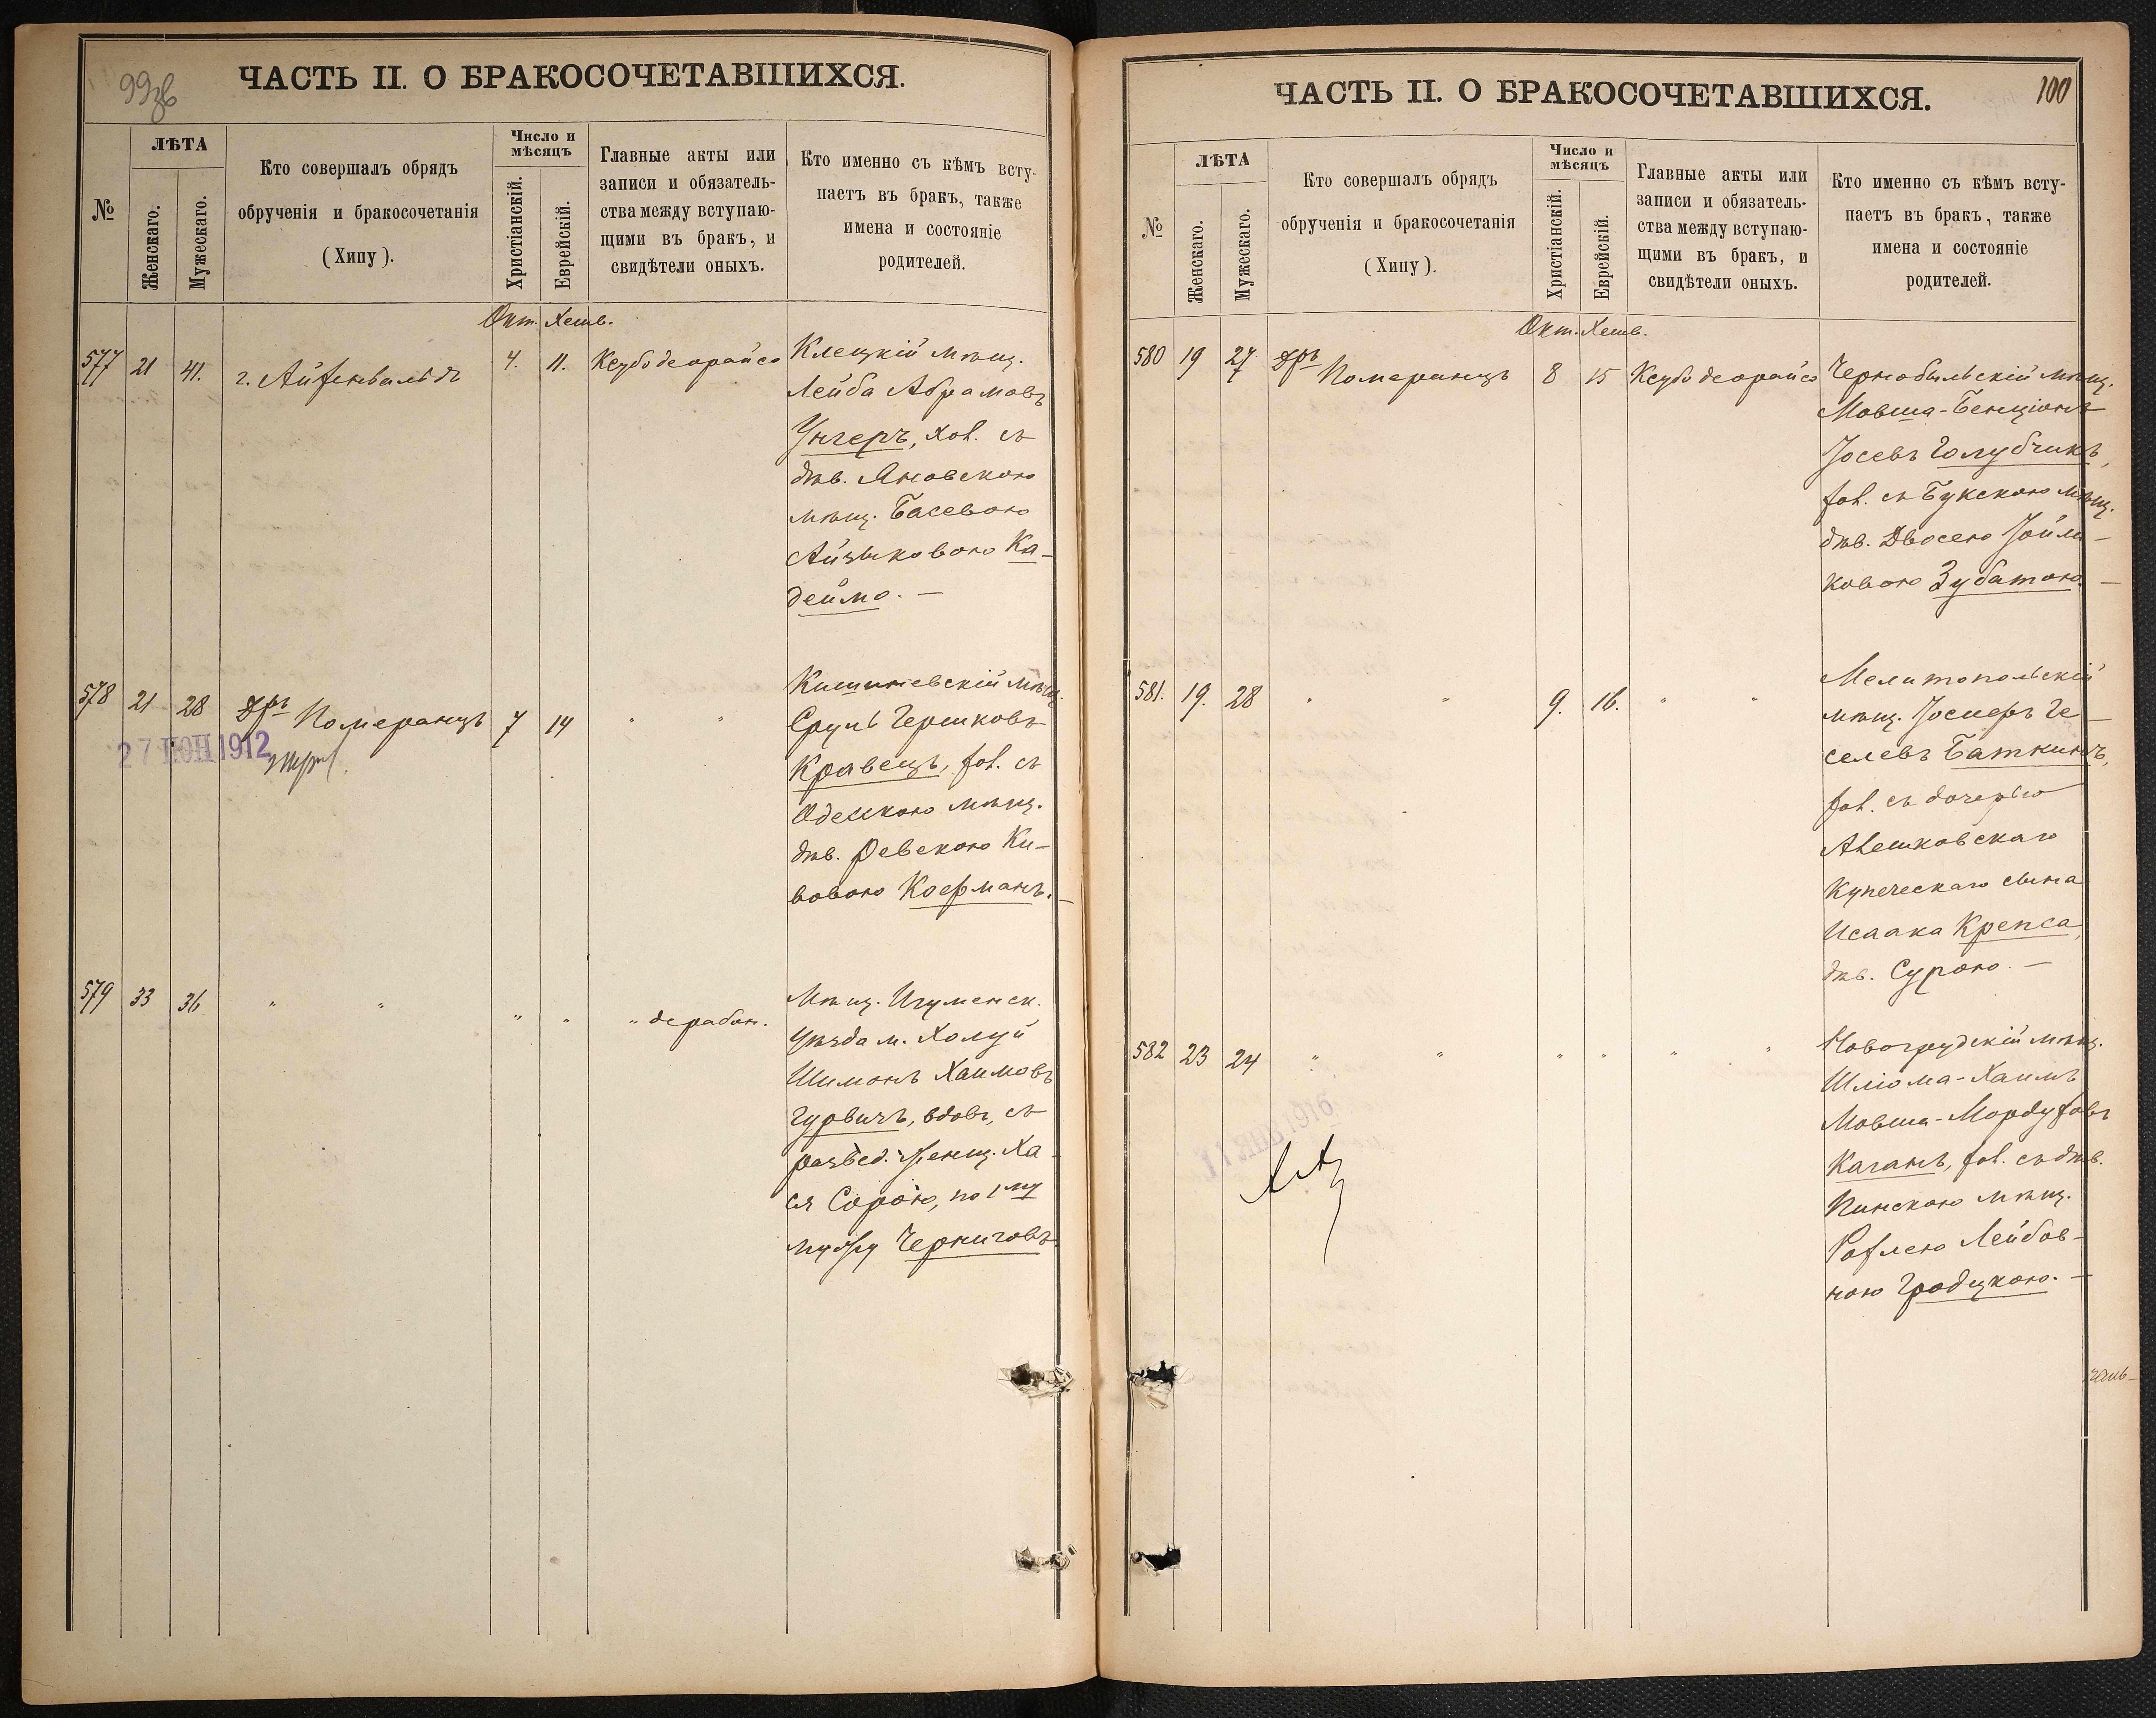 99об
ЧАСТЬ II. О БРАКОСОЧЕТАВШИХСЯ.
№
ЛѢТА
Женскаго.
Мужескаго.
Кто совершалъ обрядъ
обрученія и бракосочетанія
(Хипу).
Число и
мѣсяцъ
Христіанскій.
Еврейскій.
Главные акты или
записи и обязатель-
ства между вступаю-
щими въ бракъ, и
свидѣтели оныхъ.
Кто именно съ кѣмъ всту-
паетъ въ бракъ, также
имена и состояніе
родителей.
Окт. Хешв.
577 21 41. г. Айхенвальдъ 4. 11. Ксубо деорайсо
Клецкій мѣщ.
Лейба Абрамовъ
Унгеръ, хол. съ
дѣв. Яновскою
мѣщ. Басевою
Айзиковою Ка-
деймо. —
578 21 28 Дръ Померанцъ 7 14 " "
27 ІЮН 1912
Кишиневскій мѣщ.
Сруль Гершковъ
Кравецъ, хол. съ
Одесскою мѣщ.
дѣв. Ревекою Ки-
вовою Коефманъ. —
579 33 36 " " " " " дерабон.
Мѣщ. Игуменск.
уѣзда м. Холуй
Шимонъ Хаимовъ
Гурвичъ, вдов., съ
развед. женщ. Ха-
ся Сорою, по 1му
мужу Черниговъ.
100
ЧАСТЬ II. О БРАКОСОЧЕТАВШИХСЯ.
№
ЛѢТА
Женскаго.
Мужескаго.
Кто совершалъ обрядъ
обрученія и бракосочетанія
(Хипу).
Число и
мѣсяцъ
Христіанскій.
Еврейскій.
Главные акты или
записи и обязатель-
ства между вступаю-
щими въ бракъ, и
свидѣтели оныхъ.
Кто именно съ кѣмъ всту-
паетъ въ бракъ, также
имена и состояніе
родителей.
Окт. Хешв.
580 19 27 Дръ Померанцъ 8 15 Ксубо деорайсо
Чернобыльскій мѣщ.
Мовша-Бенціонъ
Іосевъ Голубчикъ,
хол. съ Букскою мѣщ.
дѣв. Двосею Іойли-
ковою Зубатою. —
581. 19. 28 " " 9. 16. " "
Мелитопольскій
мѣщ. Іосиферъ Ге-
селевъ Баткинъ,
хол. съ дочерью
Алешковскаго
Купеческаго сына
Исаака Крепса,
дѣв. Сурою. —
582 23 24 " " " " " "
Новогрудскій мѣщ.
Шліома-Хаимъ
Мовша-Мордуховъ
Каганъ, хол. съ дѣв.
Пинскою мѣщ.
Рохлею Лейбов-
ною Гродцкою. —